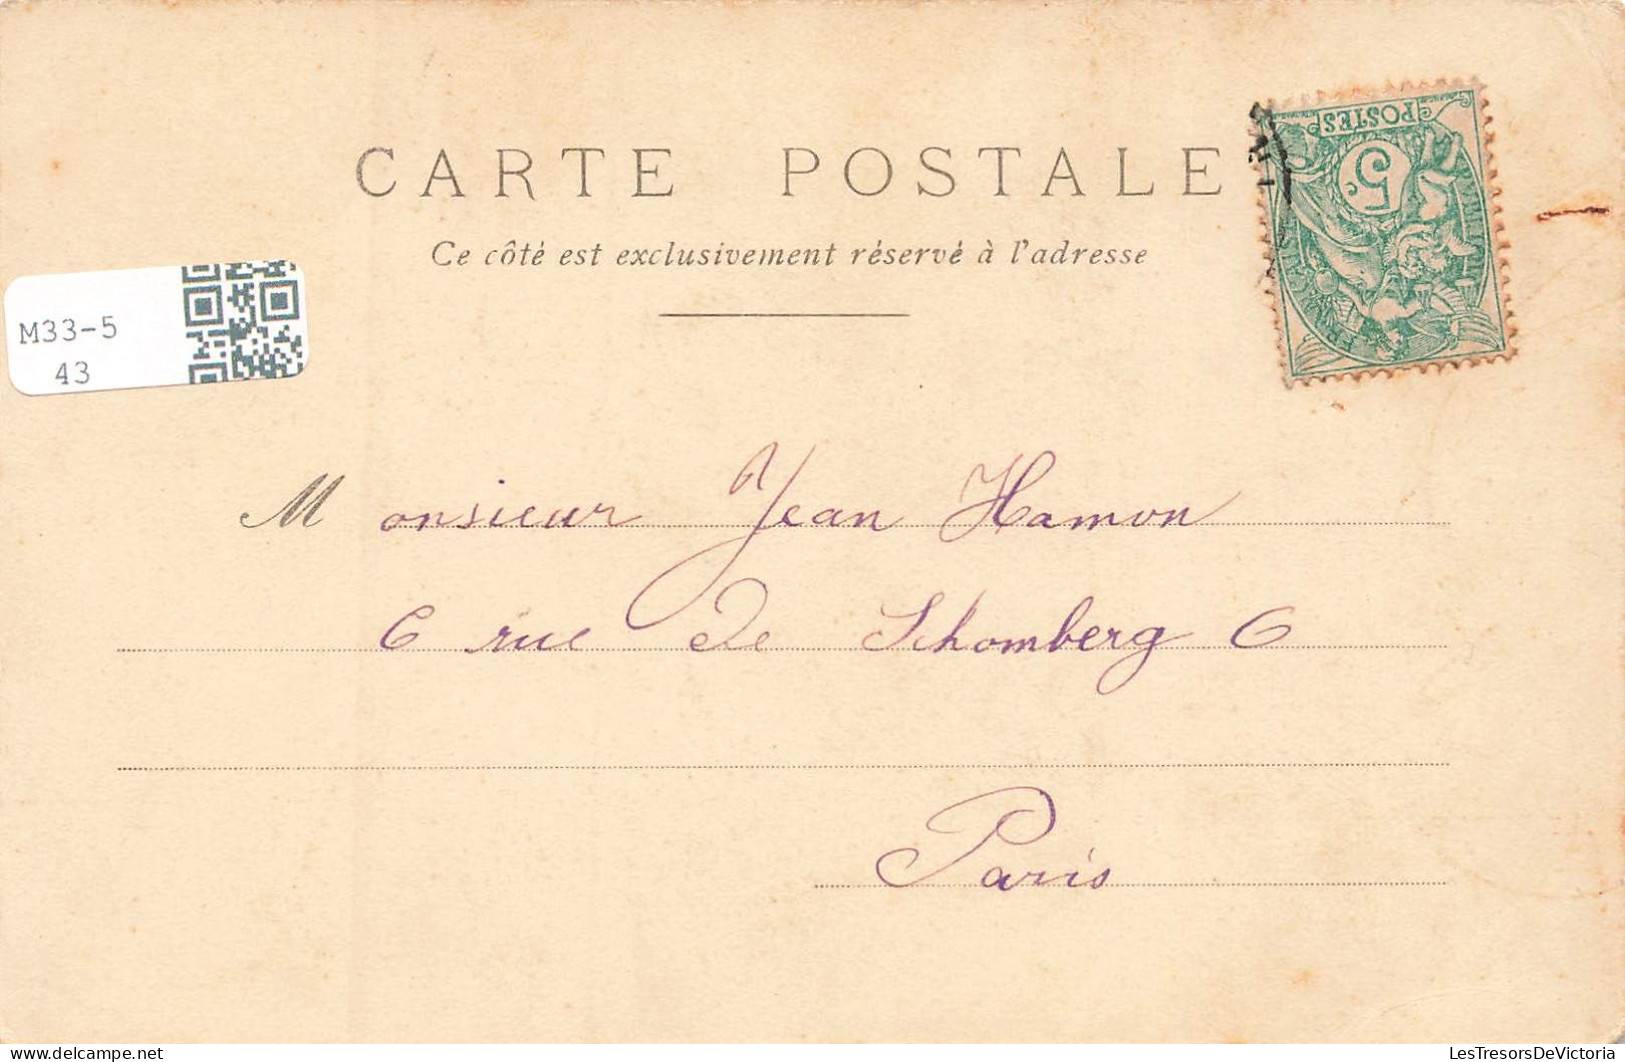 CARTE POSTALE
Ce côté est exclusivement réservé à l'adresse
POSTES
5c
M33-5
43
Monsieur Jean Hamon
6 rue de Schomberg 6
Paris
LesTresorsDeVictoria